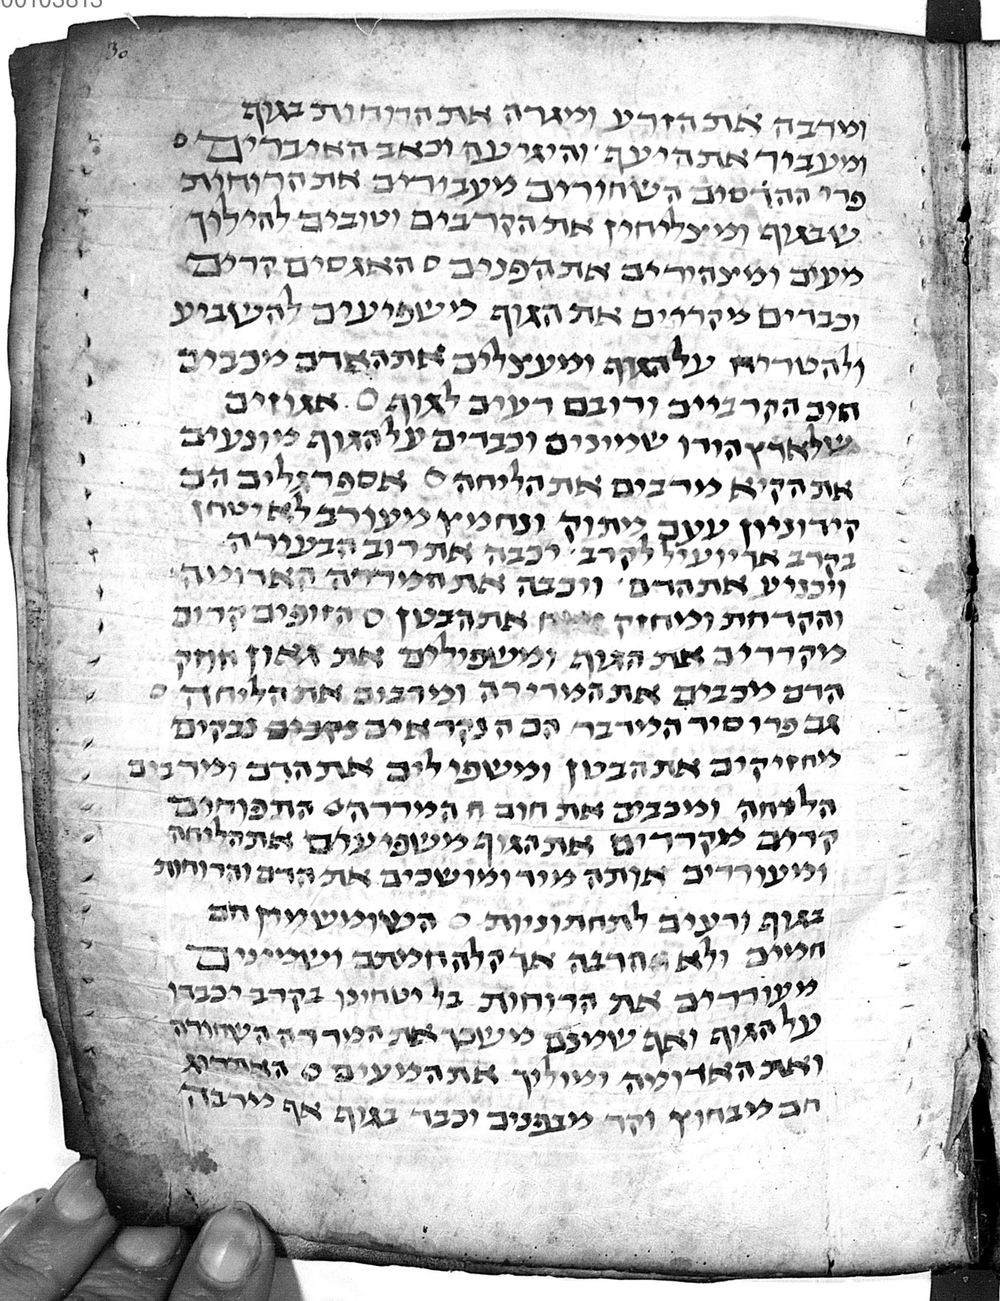 00103813
30
ומרבה את הזרע ומגרה את הרוחות בגוף
ומעביר את היעף והיגיעה וכאב האיברים
פרי ההדסים השחורים מעבירים את הרוחות
שבגוף ומצליחין את הקרבים וטובים להילוך
מעים ומצהירים את הפנים האגסים קרים
וכבדים מקררים את הגוף משפיעים להשביע
ולהטריח על הגוף ומעצלים את האדם מכבים
חום הקרביים ורובם רעים לגוף אגוזים
שלארץ הודו שמינים וכבדים על הגוף מונעים
את הקיא מרבים את הליחה אספרגלים הם
קידוניון ענב מתוק ונחמץ מעורב לא יטחן
בקרב אך יועיל לקרב יכבה את רוב הבעירה
ויכניע את הדם ויכבה את המררה האדומה
והקדחת ומחזק את הבטן הזופים קרים
מקררים את הגוף ומשפילים את גאון חוזק
הדם מכבים את המרירה ומרבים את הליחה
גם פרי סיר המדבר הם הנקראים נבקים
מחזיקים את הבטן ומשפילים את הדם ומרבים
הליחה ומכבים את חום המררה התפוחים
קרים מקררים את הגוף משפיעים את הליחה
ומעוררים אותה מיד ומושכים את הדם והרוחות
בגוף ורעים לתחתוניות השומשמין חם
חמים ולא הרבה אך קלה חמתם ושמינים
מעוררים את הרוחות בל יטחינו בקרב יכבדו
על הגוף ואף שמנם משכך את המררה השחורה
ואת האדומה ומוליך את המעים האתרוג
חם מבחוץ וקר מבפנים וכבד בגוף אף מרבה